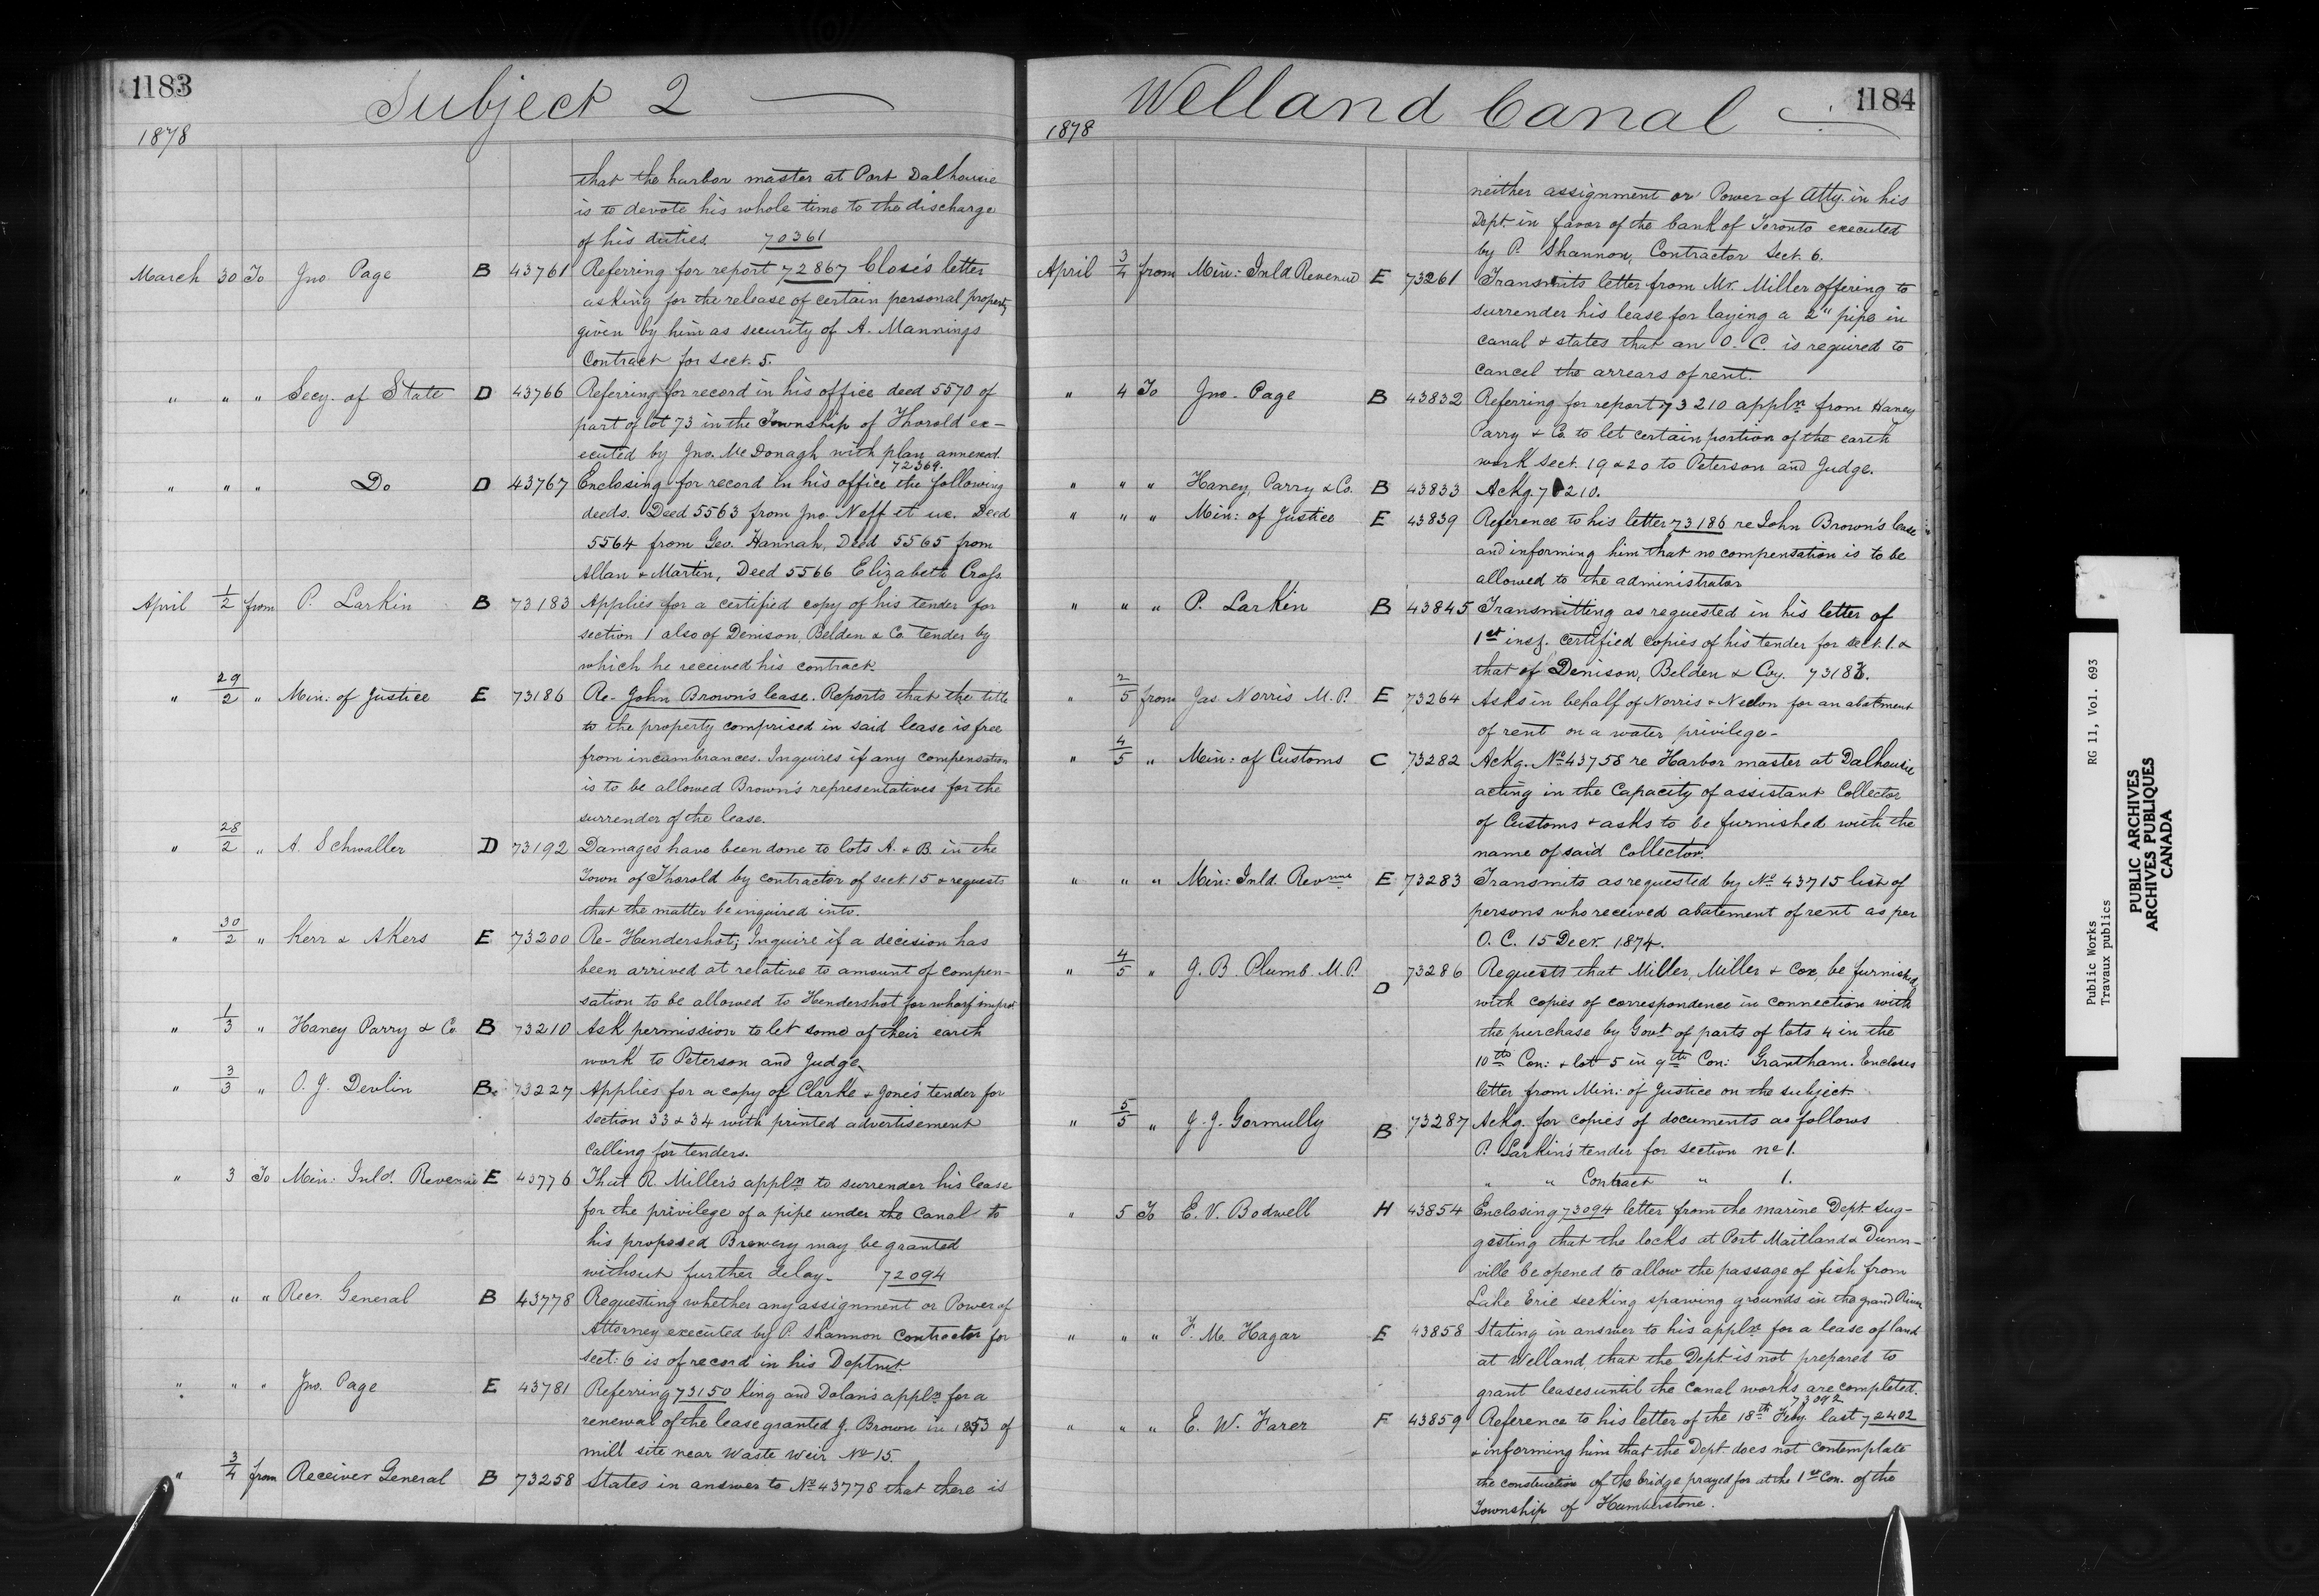 1183
Subject 2
1878
that the harbor master at Port Dalhousie
is to devote his whole time to the discharge
of his duties. 70361
March 30 To Jno Page B 43761 Referring for report 72867 Close's letter
asking for the release of certain personal property
given by him as security of A. Mannings
Contract for sect. 5.
" " " Secy. of State D 43766 Referring for record in his office deed 5570 of
part of lot 73 in the Township of Thorold ex-
ecuted by Jno. McDonagh with plan annexed.
72369.
" " " Do D 43767 Enclosing for record in his office the following
deeds. Deed 5563 from Jno. Neff et ux. Deed
5564 from Geo. Hannah, Deed 5565 from
Allan & Martin, Deed 5566 Elizabeth Cross.
April 1/2 from P. Larkin B 73183 Applies for a certified copy of his tender for
section 1 also of Denison, Belden & Co. tender by
which he received his contract.
" 29/2 " Min: of Justice E 73186 Re- John Brown's lease. Reports that the title
to the property comprised in said lease is free
from incumbrances. Inquires if any compensation
is to be allowed Brown's representatives for the
surrender of the lease.
" 28/2 " A. Schwaller D 73192 Damages have been done to lots A. & B. in the
Town of Thorold by contractor of sect. 15 & requests
that the matter be inquired into.
" 30/2 " Kerr & Akers E 73200 Re- Hendershot; Inquire if a decision has
been arrived at relative to amount of compen-
sation to be allowed to Hendershot for wharf impro:
" 1/3 " Haney Parry & Co. B 73210 Ask permission to let some of their earth
work to Peterson and Judge.
" 3/3 " O. J. Devlin B. 73227 Applies for a copy of Clarke & Jone's tender for
section 33 & 34 with printed advertisement
calling for tenders.
" 3 To Min: Inld. Revenue E 43776 That R. Miller's appln to surrender his lease
for the privilege of a pipe under the Canal to
his proposed Brewery may be granted
without further delay. 72094
" " " Recr. General B 43778 Requesting whether any assignment or Power of
Attorney executed by P. Shannon Contractor for
sect: 6 is of record in his Deptmt.
" " " Jno. Page E 43781 Referring 73150 King and Dolan's appln for a
renewal of the lease granted J. Brown in 1853 of
mill site near Waste Weir No 15.
" 3/4 from Receiver General B 73258 States in answer to No 43778 that there is
1184
Welland Canal
1878
neither assignment or Power of Atty. in his
Dept. in favor of the bank of Toronto executed
by P. Shannon, Contractor Sect. 6.
April 3/4 from Min: Inld Revenue E 73261 Transmits letter from Mr. Miller offering to
surrender his lease for laying a 2" pipe in
canal & states that an O. C. is required to
cancel the arrears of rent.
" 4 To Jno. Page B 43832 Referring for report 73210 appln from Haney
Parry & Co. to let certain portion of the earth
work Sect. 19 & 20 to Peterson and Judge.
" " " Haney, Parry & Co. B 43833 Ackg. 73210.
" " " Min: of Justice E 43839 Reference to his letter 73186 re John Brown's lease
and informing him that no compensation is to be
allowed to the administrator
" " " P. Larkin B 43845 Transmitting as requested in his letter of
1st inst. certified copies of his tender for sect. 1. &
that of Denison, Belden & Coy. 73183.
" 2/5 from Jas. Norris M. P. E 73264 Asks in behalf of Norris & Neelon for an abatement
of rent on a water privilege-
" 4/5 " Min: of Customs C 73282 Ackg. No 43758 re Harbor master at Dalhousie
acting in the Capacity of assistant Collector
of Customs & asks to be furnished with the
name of said Collector.
" " " Min: Inld. Revnue E 73283 Transmits as requested by No 43715 list of
persons who received abatement of rent as per
O. C. 15 Decr. 1874.
" 4/5 " J. B. Plumb M. P. D 73286 Requests that Miller, Miller & Cox, be furnished
with copies of correspondence in connection with
the purchase by Govt of parts of lots 4 in the
10th Con: & lot 5 in 9th Con: Grantham. Encloses
letter from Min: of Justice on the subject.
" 5/5 " J. J. Gormully B 73287 Ackg. for copies of documents as follows
P. Larkin's tender for section no 1.
" " Contract " 1.
" 5 To E. V. Bodwell H 43854 Enclosing 73094 letter from the marine Dept sug-
gesting that the locks at Port Maitland & Dunn-
ville be opened to allow the passage of fish from
Lake Erie seeking spawing grounds in the grand River
" " " F. M. Hagar E 43858 Stating in answer to his appln for a lease of land
at Welland, that the Dept. is not prepared to
grant leases until the canal works are completed.
73092
" " " E. W. Farer F 43859 Reference to his letter of the 18th Feby. last 72402
& informing him that the Dept. does not contemplate
the construction of the bridge prayed for at the 1st Con. of the
Township of Humberstone.
Public Works
Travaux publics
RG 11, Vol. 693
PUBLIC ARCHIVES
ARCHIVES PUBLIQUES
CANADA